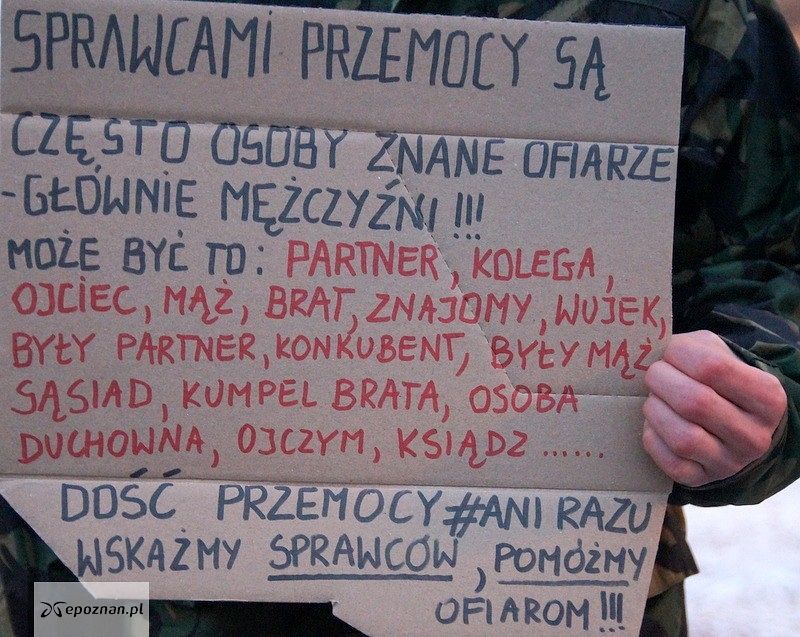 SPRAWCAMI PRZEMOCY SĄ
CZĘSTO OSOBY ZNANE OFIARZE
-GŁÓWNIE MĘŻCZYŹNI !!!
MOŻE BYĆ TO: PARTNER, KOLEGA,
OJCIEC, MĄŻ, BRAT, ZNAJOMY, WUJEK,
BYŁY PARTNER, KONKUBENT, BYŁY MĄŻ
SĄSIAD, KUMPEL BRATA, OSOBA
DUCHOWNA, OJCZYM, KSIĄDZ ......
DOŚĆ PRZEMOCY #ANI RAZU
WSKAŻMY SPRAWCÓW, POMÓŻMY
OFIAROM!!!
epoznan.pl